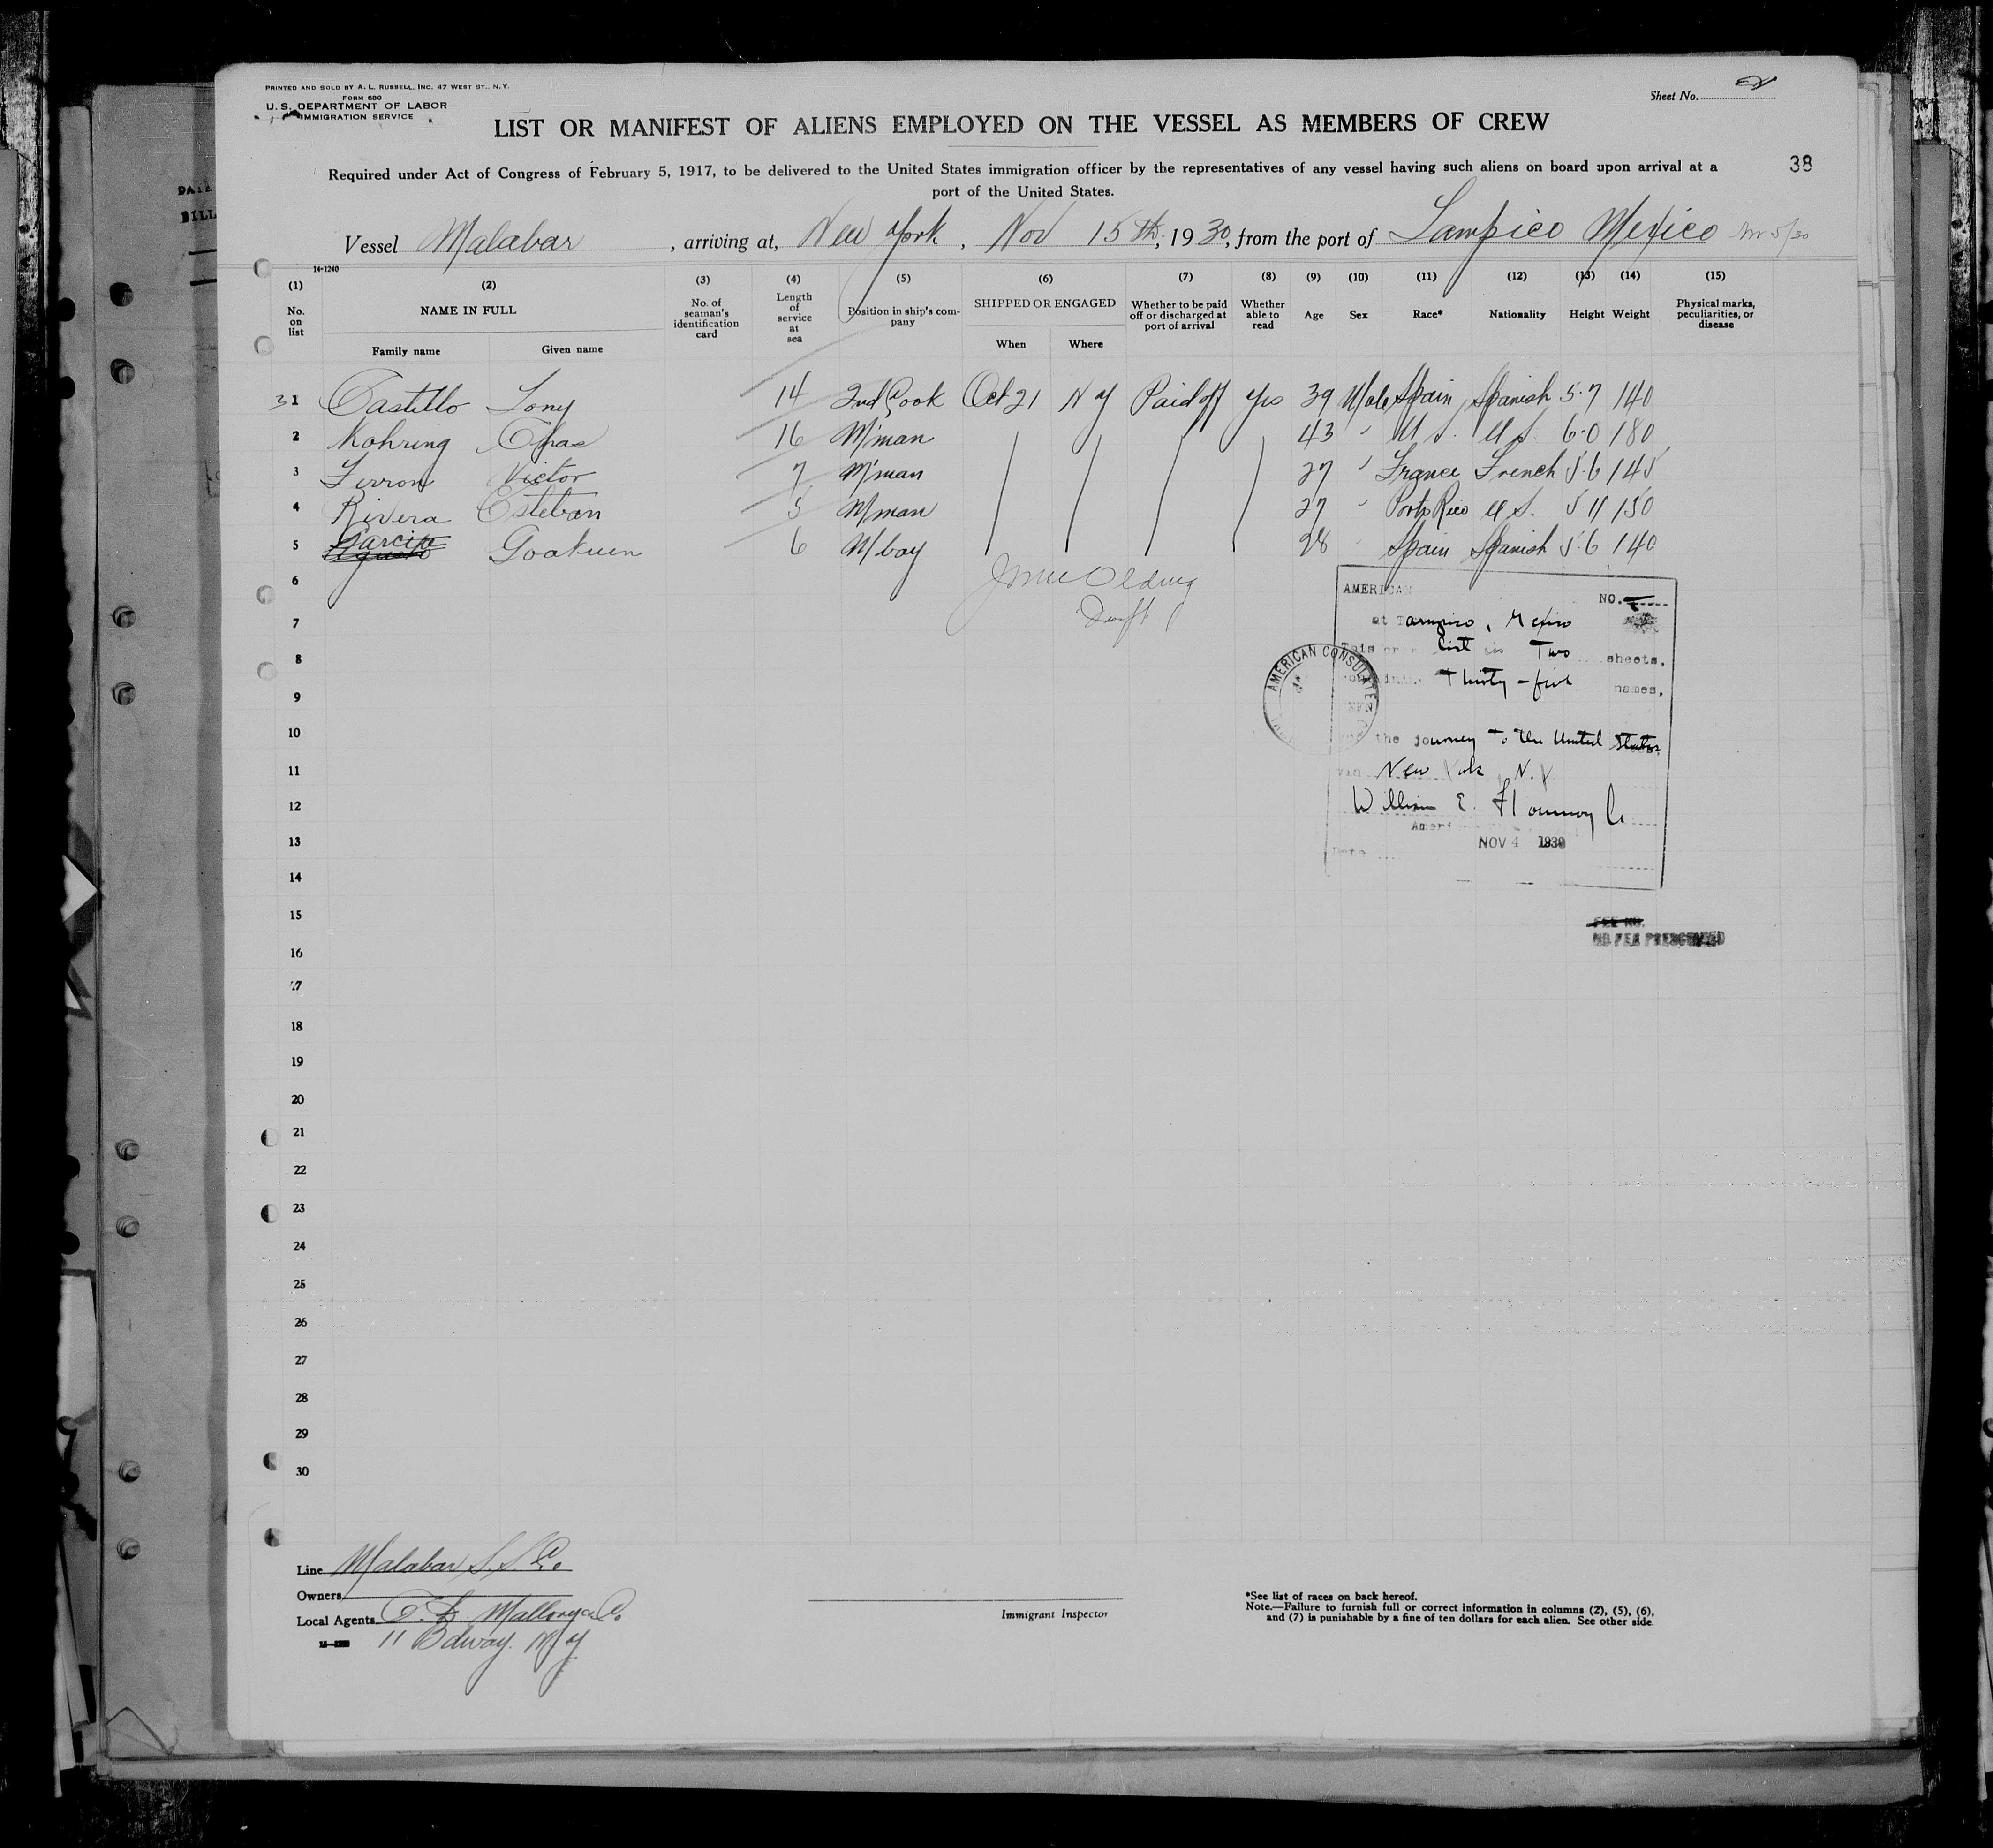 PRINTED AND SOLD BY A. L. RUSSELL, INC. 47 WEST ST., N. Y.
FORM 680
U. S. DEPARTMENT OF LABOR
IMMIGRATION SERVICE
Sheet No. 2
LIST OR MANIFEST OF ALIENS EMPLOYED ON THE VESSEL AS MEMBERS OF CREW
Required under Act of Congress of February 5, 1917, to be delivered to the United States immigration officer by the representatives of any vessel having such aliens on board upon arrival at a
port of the United States.
38
Vessel Malabar, arriving at, New York, Nov 15th, 1930, from the port of Tampico Mexico Nov 5/30
14-1240
(1) (2) (3) (4) (5) (6) (7) (8) (9) (10) (11) (12) (13) (14) (15)
No. on list NAME IN FULL No. of seaman's identification card Length of service at sea Position in ship's company SHIPPED OR ENGAGED Whether to be paid off or discharged at port of arrival Whether able to read Age Sex Race* Nationality Height Weight Physical marks, peculiarities, or disease
Family name Given name When Where
31 Castillo Tony 14 2nd Cook Oct 21 N Y Paid off Yes 39 Male Spain Spanish 5-7 140
2 Kohring Chas 16 M'man 43 " U S. U S. 6-0 180
3 Ferron Victor 7 M'man 27 " France French 5-6 145
4 Rivera Esteban 5 M'man 27 " Porto Rico U S. 5 11 150
5 Garcia Goakuin 6 M/boy 28 " Spain Spanish 5-6 140
6
7
8
9
10
11
12
13
14
15
16
17
18
19
20
21
22
23
24
25
26
27
28
29
30
AMERICAN
NO.
at Tampico, Mexico
This crew list is Two sheets,
Thirty-five names,
the journey to the United States
via New York, N.Y
William E. Flournoy
NOV 4 1930
Date
AMERICAN CONSULATE
FEE NO.
NO FEE PRESCRIBED
Line Malabar S. S. Co.
Owners
Local Agents C. D. Mallory & Co.
11 Bdway. N Y
Immigrant Inspector
*See list of races on back hereof.
Note.—Failure to furnish full or correct information in columns (2), (5), (6),
and (7) is punishable by a fine of ten dollars for each alien. See other side.